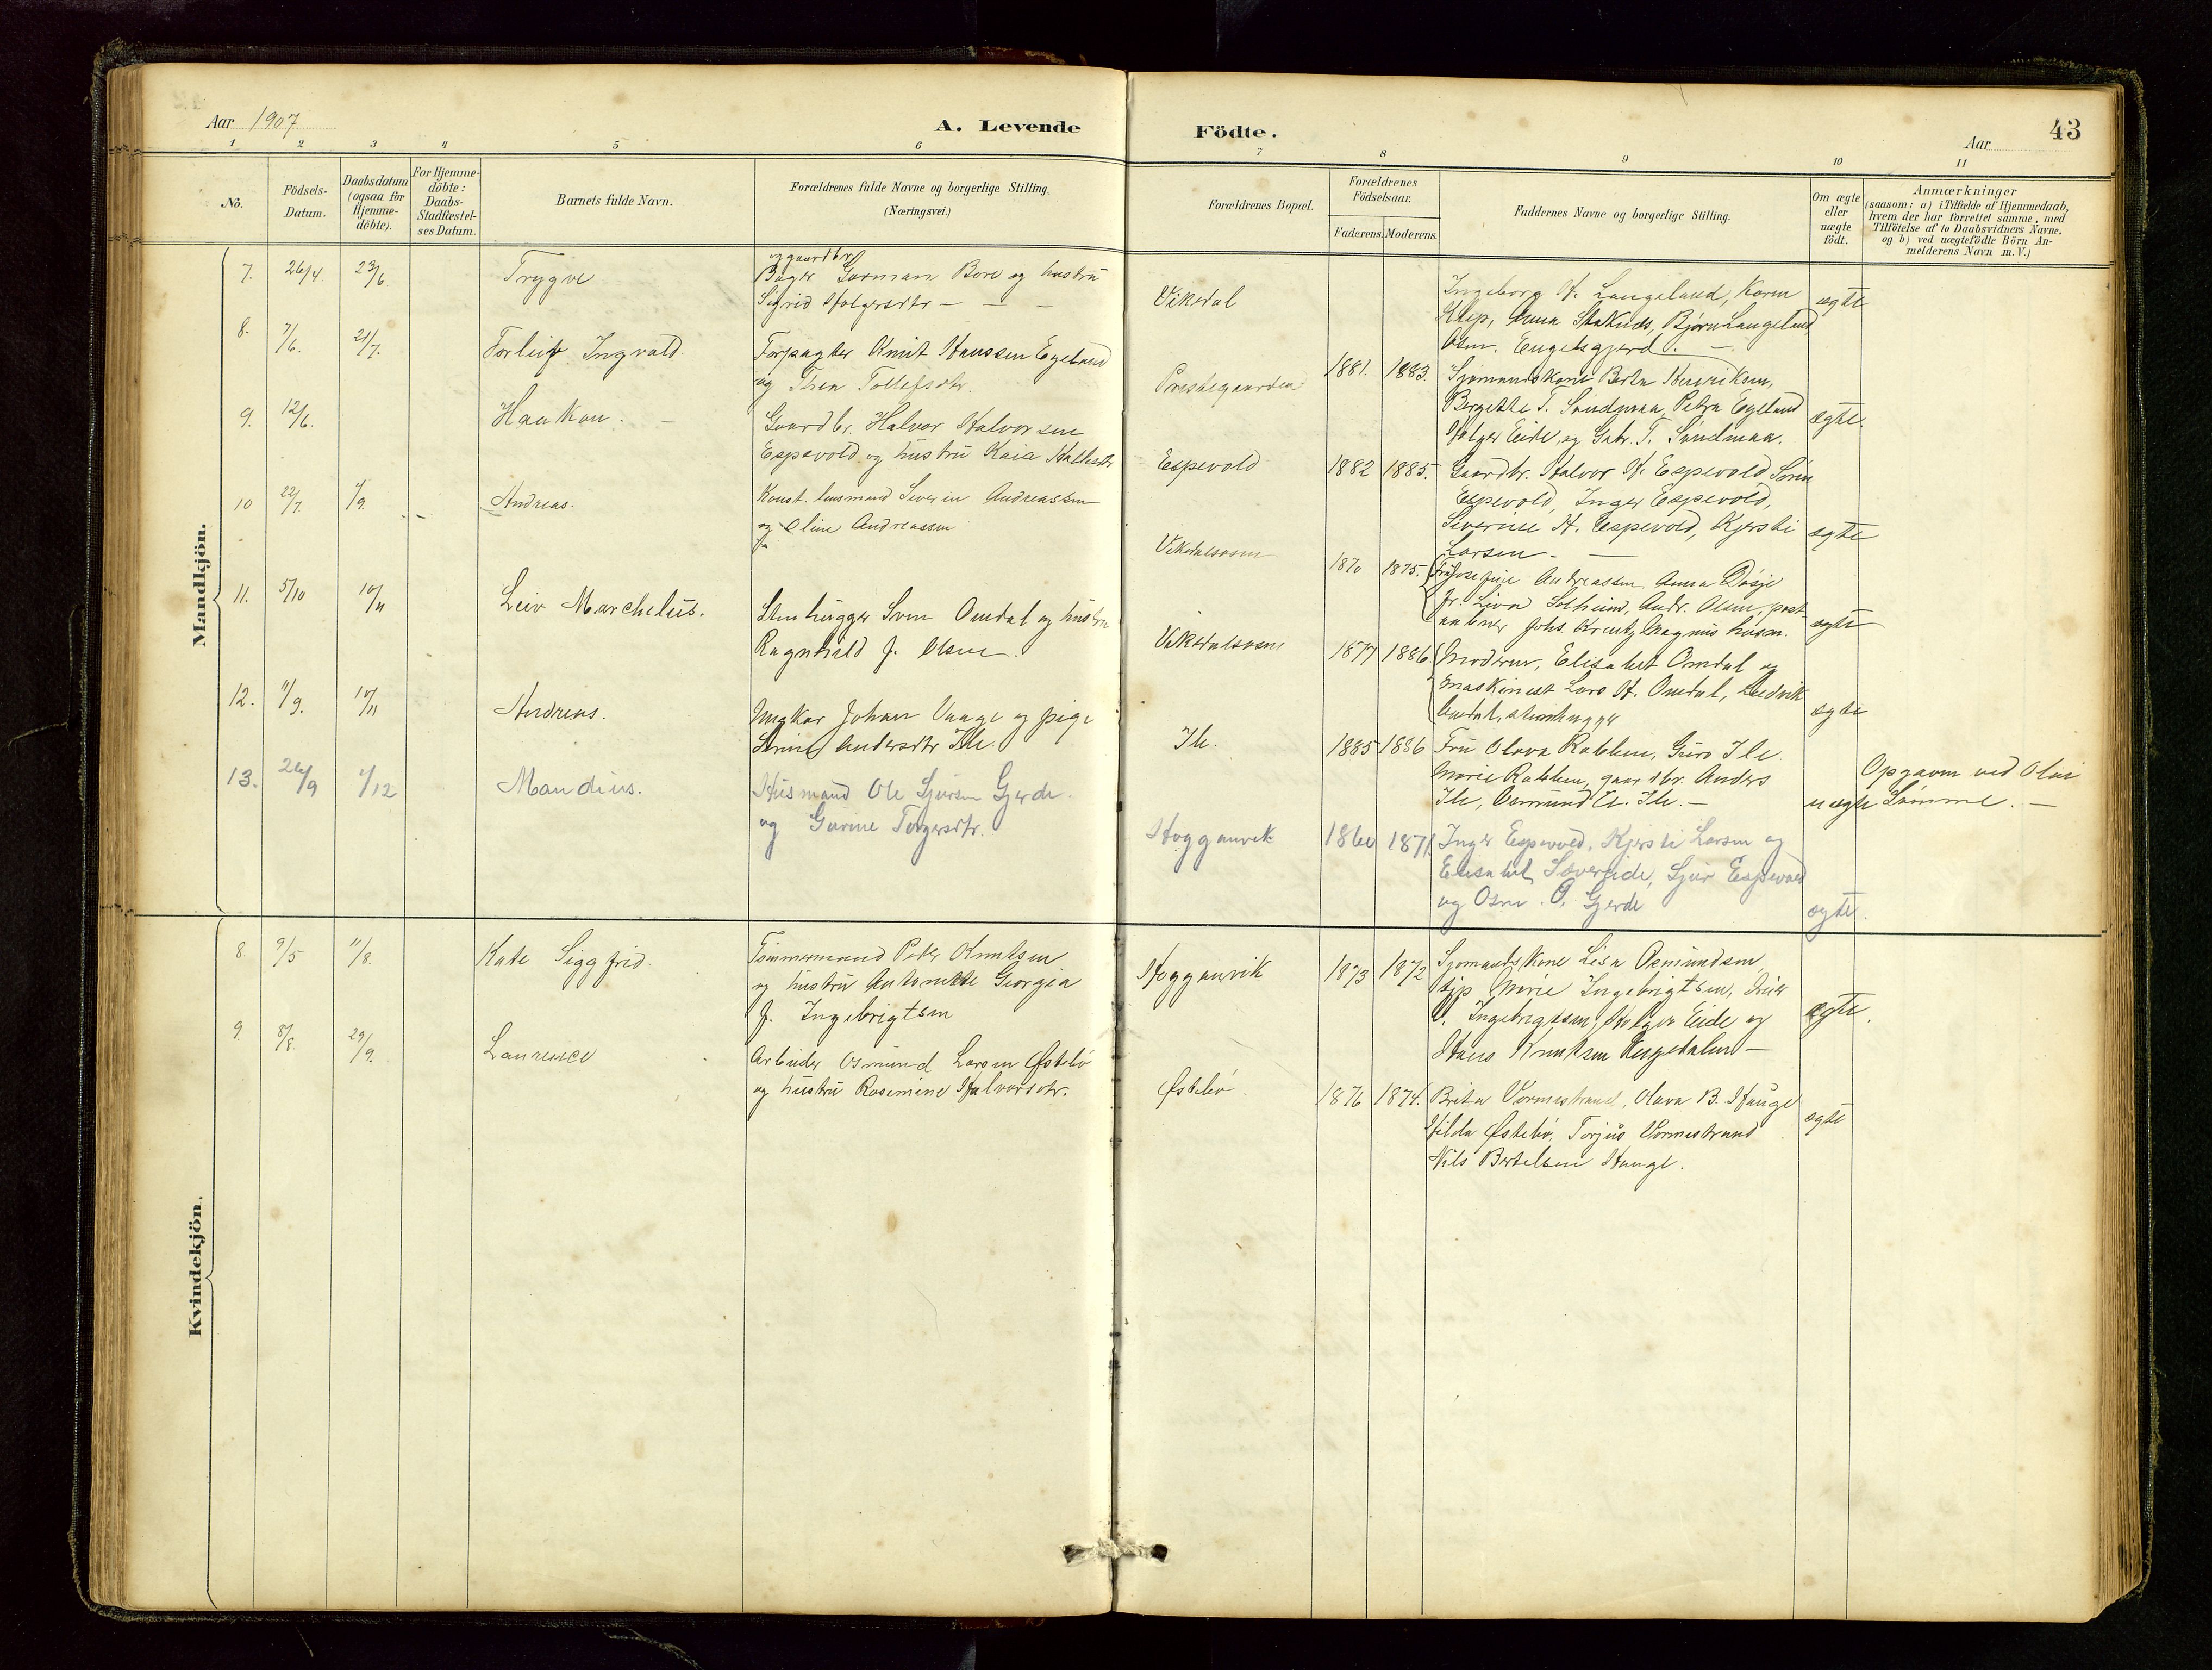 Aar 1907
A. Levende
Födte.
Aar
43
1 2 3 4 5 6 7 8 9 10 11
No.
Födsels-Datum.
Daabsdatum (ogsaa for Hjemme-döbte).
For Hjemme-döbte: Daabs-Stadfæstel-ses Datum.
Barnets fulde Navn.
Forældrenes fulde Navne og borgerlige Stilling. (Næringsvei.)
Forældrenes Bopæl.
Forældrenes Födselsaar.
Faderens. Moderens.
Faddernes Navne og borgerlige Stilling.
Om ægte eller uægte födt.
Anmærkninger
(saasom: a) i Tilfælde af Hjemmedaab,
hvem der har forrettet samme, med
Tilföielse af to Daabsvidners Navne,
og b) ved uægtefödte Börn An-
melderens Navn m. V.)
Mandkjön.
7. 26/4. 23/6. Trygve
og gaardbr
Bager Gorman Bore og hustru
Sigrid Holgersdtr
Vikedal
Ingeborg H. Langeland, Karen
Klep, Anna Staknes, Bjørn Langeland
Osm. Engelsgjerd.
ægte
8. 7/6. 21/7. Torleif Ingvald.
Forpagter Knut Hanssen Egeland
og Thea Tollefsdtr.
Prestegaarden
1881. 1883.
Sjømandskone Berta Henriksen,
Bergitte T. Sandmaa, Petra Egeland
Holger Eide, og Gabr. T. Sandmaa.
ægte.
9. 12/6. Haakon.
Gaardbr. Halvor Halvorsen
Espevold og hustru Kaia
Espevold
1882 1885.
Gaardbr. Halvor H. Espevold Søren
Espevold, Inger Espevold,
Severine H. Espevold, Kjersti
Larsen
ægte
10 22/7. /9. Andreas.
Konst. lensmand Severin Andreassen
og Oline Andreassen
Vikedalsosen
1870 1875.
Fru Josefine Andreassen Anna Døsje
fr. Livn Solheim, Andr. Olsen, post-
aabner Johs. Kreutz, Magnus husm.
ægte
11. 5/10 10/11 Leiv Marchelius.
Stenhugger Sven Omdal og hustru
Ragnhild J. Olsen.
Vikedalsosen
1877 1886.
Moderen, Elisabet Omdal og
maskinist Lars H. Omdal, Ludvik
Omdal, stenhugger
ægte
12. 11/9. 10/11 Andreas.
Ungkar Johan Vaage og pige
Andersdtr Ile.
Ile.
1885 1886
Fru Olava Rabben, Guro Ile.
Marie Rabben, gaardbr. Anders
Ile, Osmund A. Ile.
uægte
Opgaven ved Olai
Lømme.
13. 26/9 1/12 Mandius.
Husmand Ole Sjursen Gjerde.
og Gurine Torgersdtr.
Hogganvik
1860 1871.
Inger Espevold, Kjersti Larsen og
Elisabet Søvereide, Sjur Espevold
og Osm. O. Gjerde
ægte.
Kvindekjön.
8. 9/5 11/8. Kate Siggfrid.
Tømmermand Peder Knutsen
og hustru Antonette Georgia
J. Ingebrigtsen
Hogganvik
1873 1872
Sjomandskone Lisa Osmundsen
Marie Ingebrigtsen,
Ingebrigtsen, Holger Eide og
Hans Knutsen
ægte.
9. 8/8. 29/9. Laurence
Arbeider Osmund Larsen Østebø
og hustru Rosemine Halvorsdtr.
Østebø
1876 1874.
Brita Vormestrand, Olava B. Hauge
Hilda Østebø, Torjus Vormestrand
Nils Bertelsen Hauge.
ægte